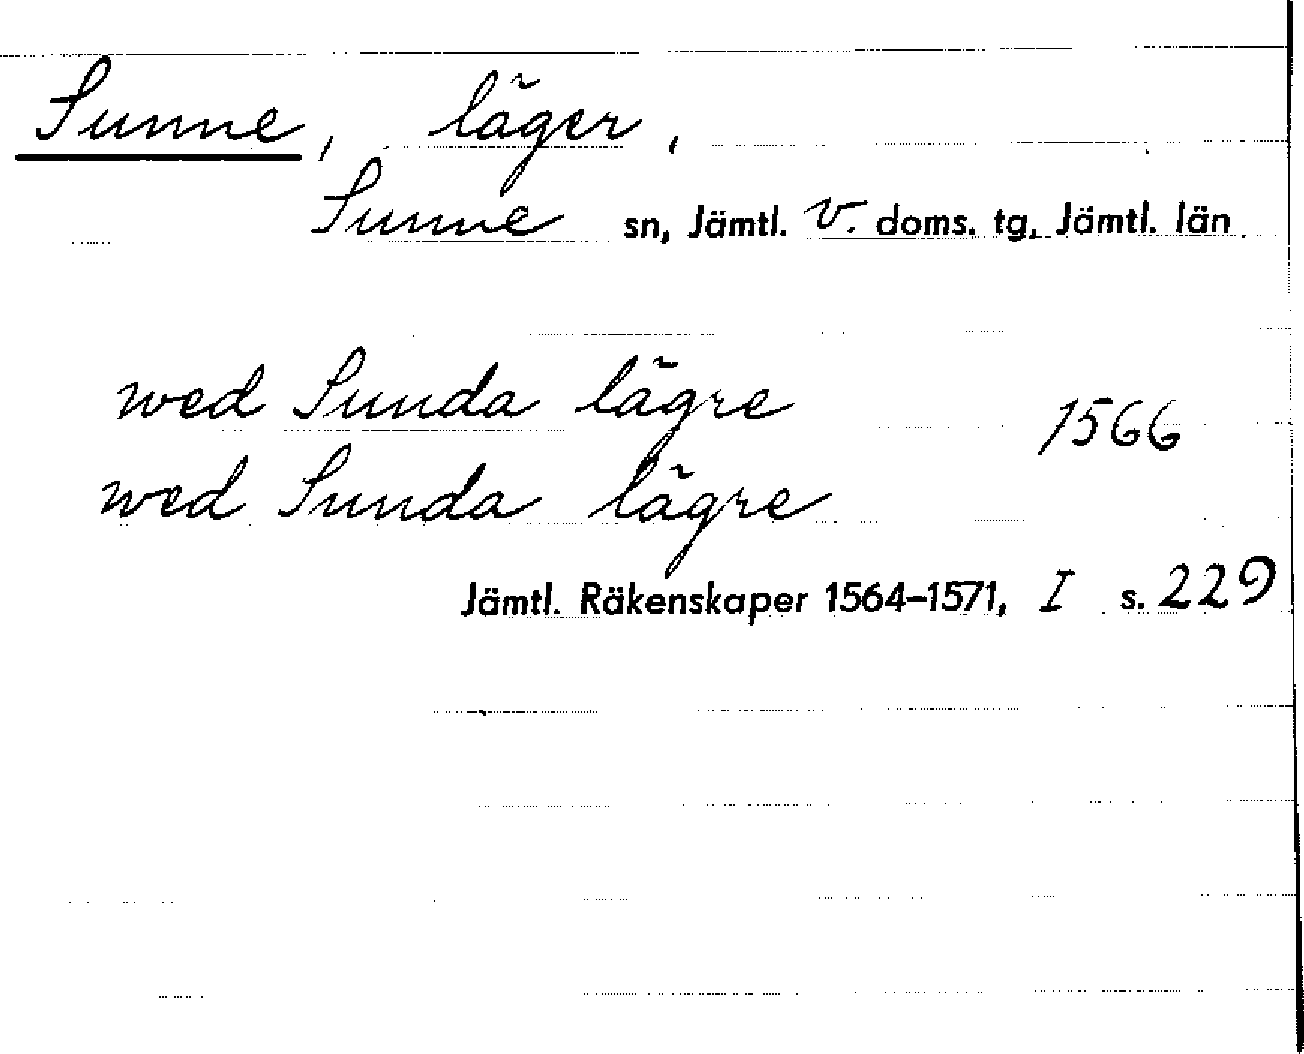 Sunne, läger,
Sunne sn, Jämtl. V. doms. tg, Jämtl. län
wed Sunda lägre 1566
wed Sunda lägre
Jämtl. Räkenskaper 1564–1571, I s. 229